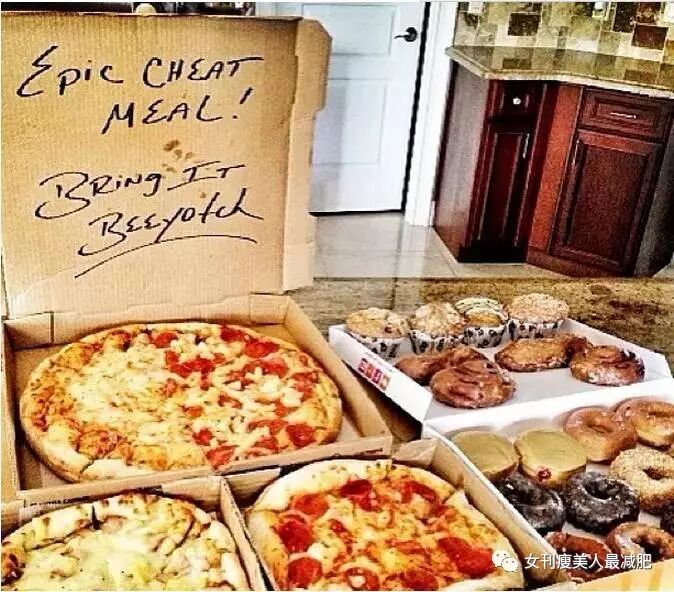 Epic CHEAT
MEAL!
BRING IT
BEEYOTCH
女刊瘦美人最减肥